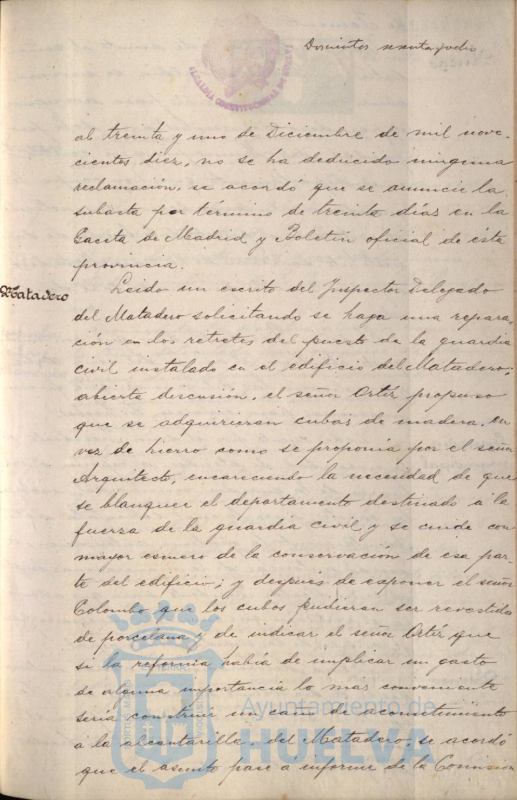 Doscientos sesenta y ocho
ALCALDIA CONSTITUCIONAL DE HUELVA
al treinta y uno de Diciembre de mil nove-
cientos diez, no se ha deducido ninguna
reclamación, se acordó que se anuncie la
subasta por término de treinta días en la
Gaceta de Madrid y Boletin oficial de ésta
provincia.
Matadero
Leido un escrito del Inspector Delegado
del Matadero solicitando se haga una repara-
ción en los retretes del puesto de la guardia
civil instalado en el edificio del Matadero;
abierta discusión, el señor Ortíz propuso
que se adquirieran cubas de madera, en
vez de hierro como se proponia por el señor
Arquitecto, encareciendo la necesidad de que
se blanquee el departamento destinado á la
fuerza de la guardia civil, y se cuide con
mayor esmero de la conservación de esa par-
te del edificio; y después de exponer el señor
Colombo que los cubos pudieran ser revestidos
de porcelana y de indicar el señor Ortíz que
si la reforma había de implicar un gasto
de alguna importancia lo mas conveniente
sería construir un caño de acometimiento
á la alcantarilla del Matadero, se acordó
que el asunto pase a informe de la Comision
Ayuntamiento de
HUELVA